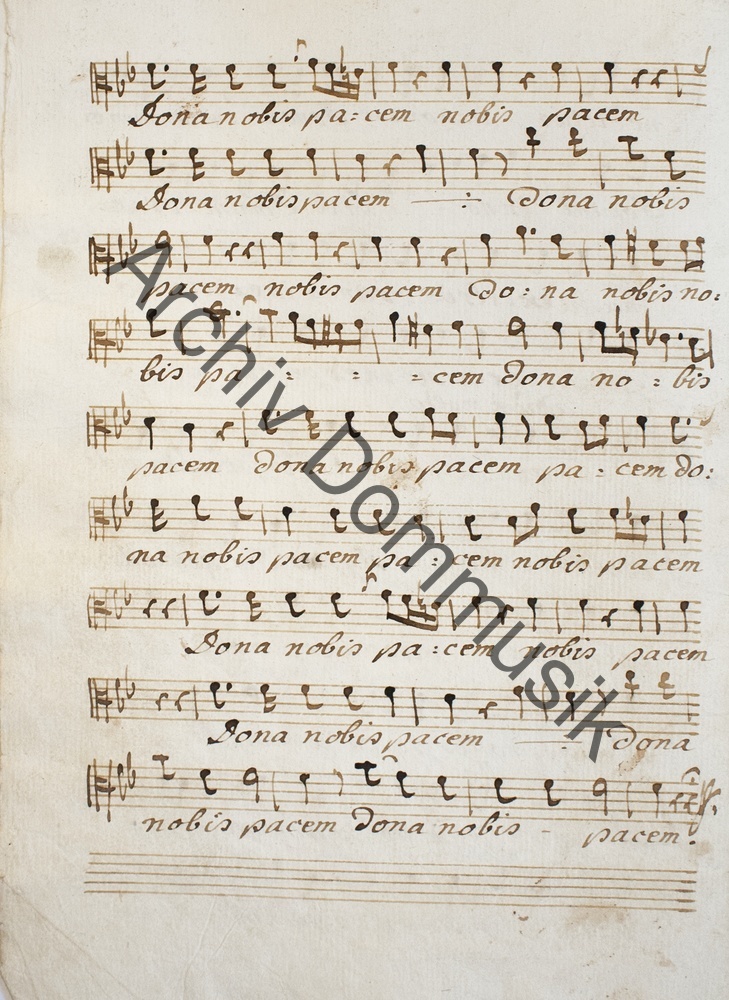 Dona nobis pa=cem nobis pacem
Dona nobis pacem —:— dona nobis
pacem nobis pacem Do: na nobis no:
bis pa = = = cem dona no = bis
pacem dona nobis pacem pa = cem do:
na nobis pacem pa = cem nobis pacem
Dona nobis pa=cem nobis pacem
Dona nobis pacem —:— dona
nobis pacem dona nobis - pacem.
Archiv Dommusik